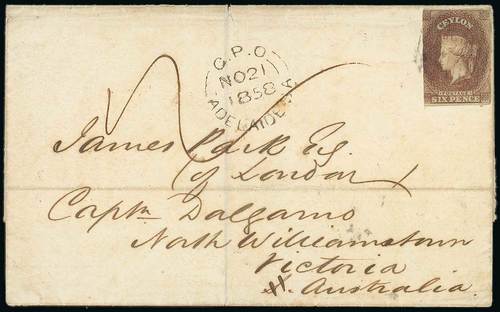 CEYLON
POSTAGE
SIX PENCE
G.P.O
NO 21
1858
ADELAIDE S.A
James Park Esq.
of London
Captn Dalgarno
North Williamstown
Victoria
Australia.